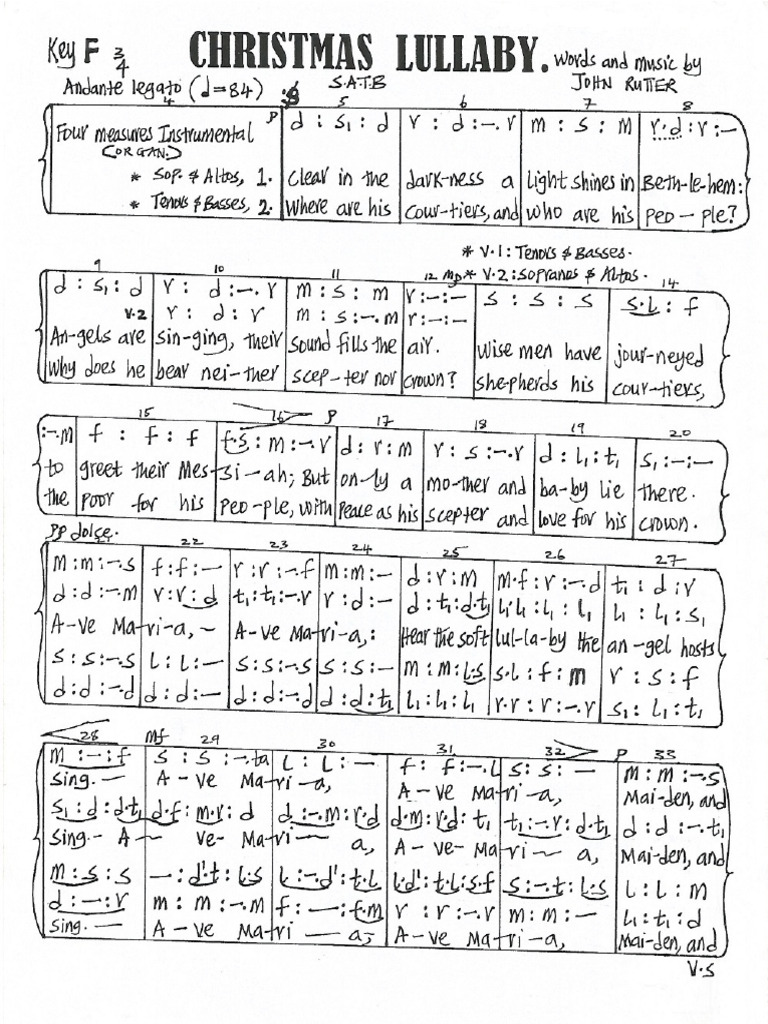 Key F 3/4 CHRISTMAS LULLABY. Words and music by
Andante legato (d=84) :S S.A.T.B JOHN RUTTER
4 5 6 7 8
Four measures Instrumental P d : s₁ : d r : d :-.r m : s : m r.d : r : -
(ORGAN.)
* Sop. & Altos, 1. Clear in the dark-ness a Light shines in Beth-le-hem:
* Tenors & Basses, 2. Where are his cour-tiers, and who are his peo-ple?
* V.1: Tenors & Basses.
9 10 11 12 mp * V.2: Sopranos & Altos. 14
d : s₁ : d r : d :-.r m : s : m r:-:- s : s : s s.l : f
V.2 r : d : r m : s :-.m r:-:-
An-gels are sin-ging, their sound fills the air. Wise men have jour-neyed
Why does he bear nei-ther scep-ter nor crown? she-pherds his cour-tiers,
15 16 P 17 18 19 20
:-.m f : f : f f.s : m :-.r d : r : m r : s :-.r d : l₁ : t₁ s₁ :-:-
to greet their Mes-si-ah; But on-ly a mo-ther and ba-by lie there.
the poor for his peo-ple, with Peace as his scepter and love for his crown.
PP dolce. 22 23 24 25 26 27
m : m :-.s f : f :- r : r :-.f m : m :- d : r : m m.f : r :-.d t₁ : d : r
d : d :-.m r : r : d t₁ : t₁ :-.r r : d :- d : t₁ : d.t₁ l₁.l₁ : l₁ : l₁ l₁ : l₁ : s₁
A-ve Ma-ri-a,- A-ve Ma-ri-a,: Hear the soft lul-la-by the an-gel hosts
s : s :-.s l : l :- s : s :-.s s : s :- m : m : l.s s.l : f : m r : s : f
d : d :-.d d : d :- d : d :-.d d : d : t₁ l₁ : l₁ : l₁ r.r : r :-.r s₁ : l₁ : t₁
28 mf 29 30 31 32 P 33
m :-: f s : s :-.ta l : l :- f : f :-.l s : s :- m : m :-.s
sing.- A-ve Ma-ri-a, A-ve Ma-ri-a, Mai-den, and
s₁ : d : d.t₁ d.f : m.r : d d :-.m : r.d d.m : r.d : t₁ t₁ :-.r : d.t₁ d : d :-.t₁
sing.- A- ve-Ma-ri-a, A-ve-Ma-ri-a, Mai-den, and
m : s : s - : d'.t : l.s l :-.d' : t.l l.d' : t.l : s.f s :-.t : l.s l : l : m
d :-: r m : m :-.m f :-: f.m r : r :-.r m : m :- l₁ : t₁ : d
sing.- A-ve Ma-ri-a,- A-ve Ma-ri-a, Mai-den, and
V.S